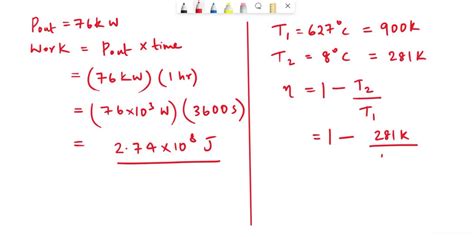 Pout = 76kW
Work = Pout × time
= (76kW) (1 hr)
= (76×10³ W) (3600s)
= 2.74×10⁸ J
T₁ = 627°C = 900K
T₂ = 8°C = 281K
η = 1 - T₂/T₁
= 1 - 281K